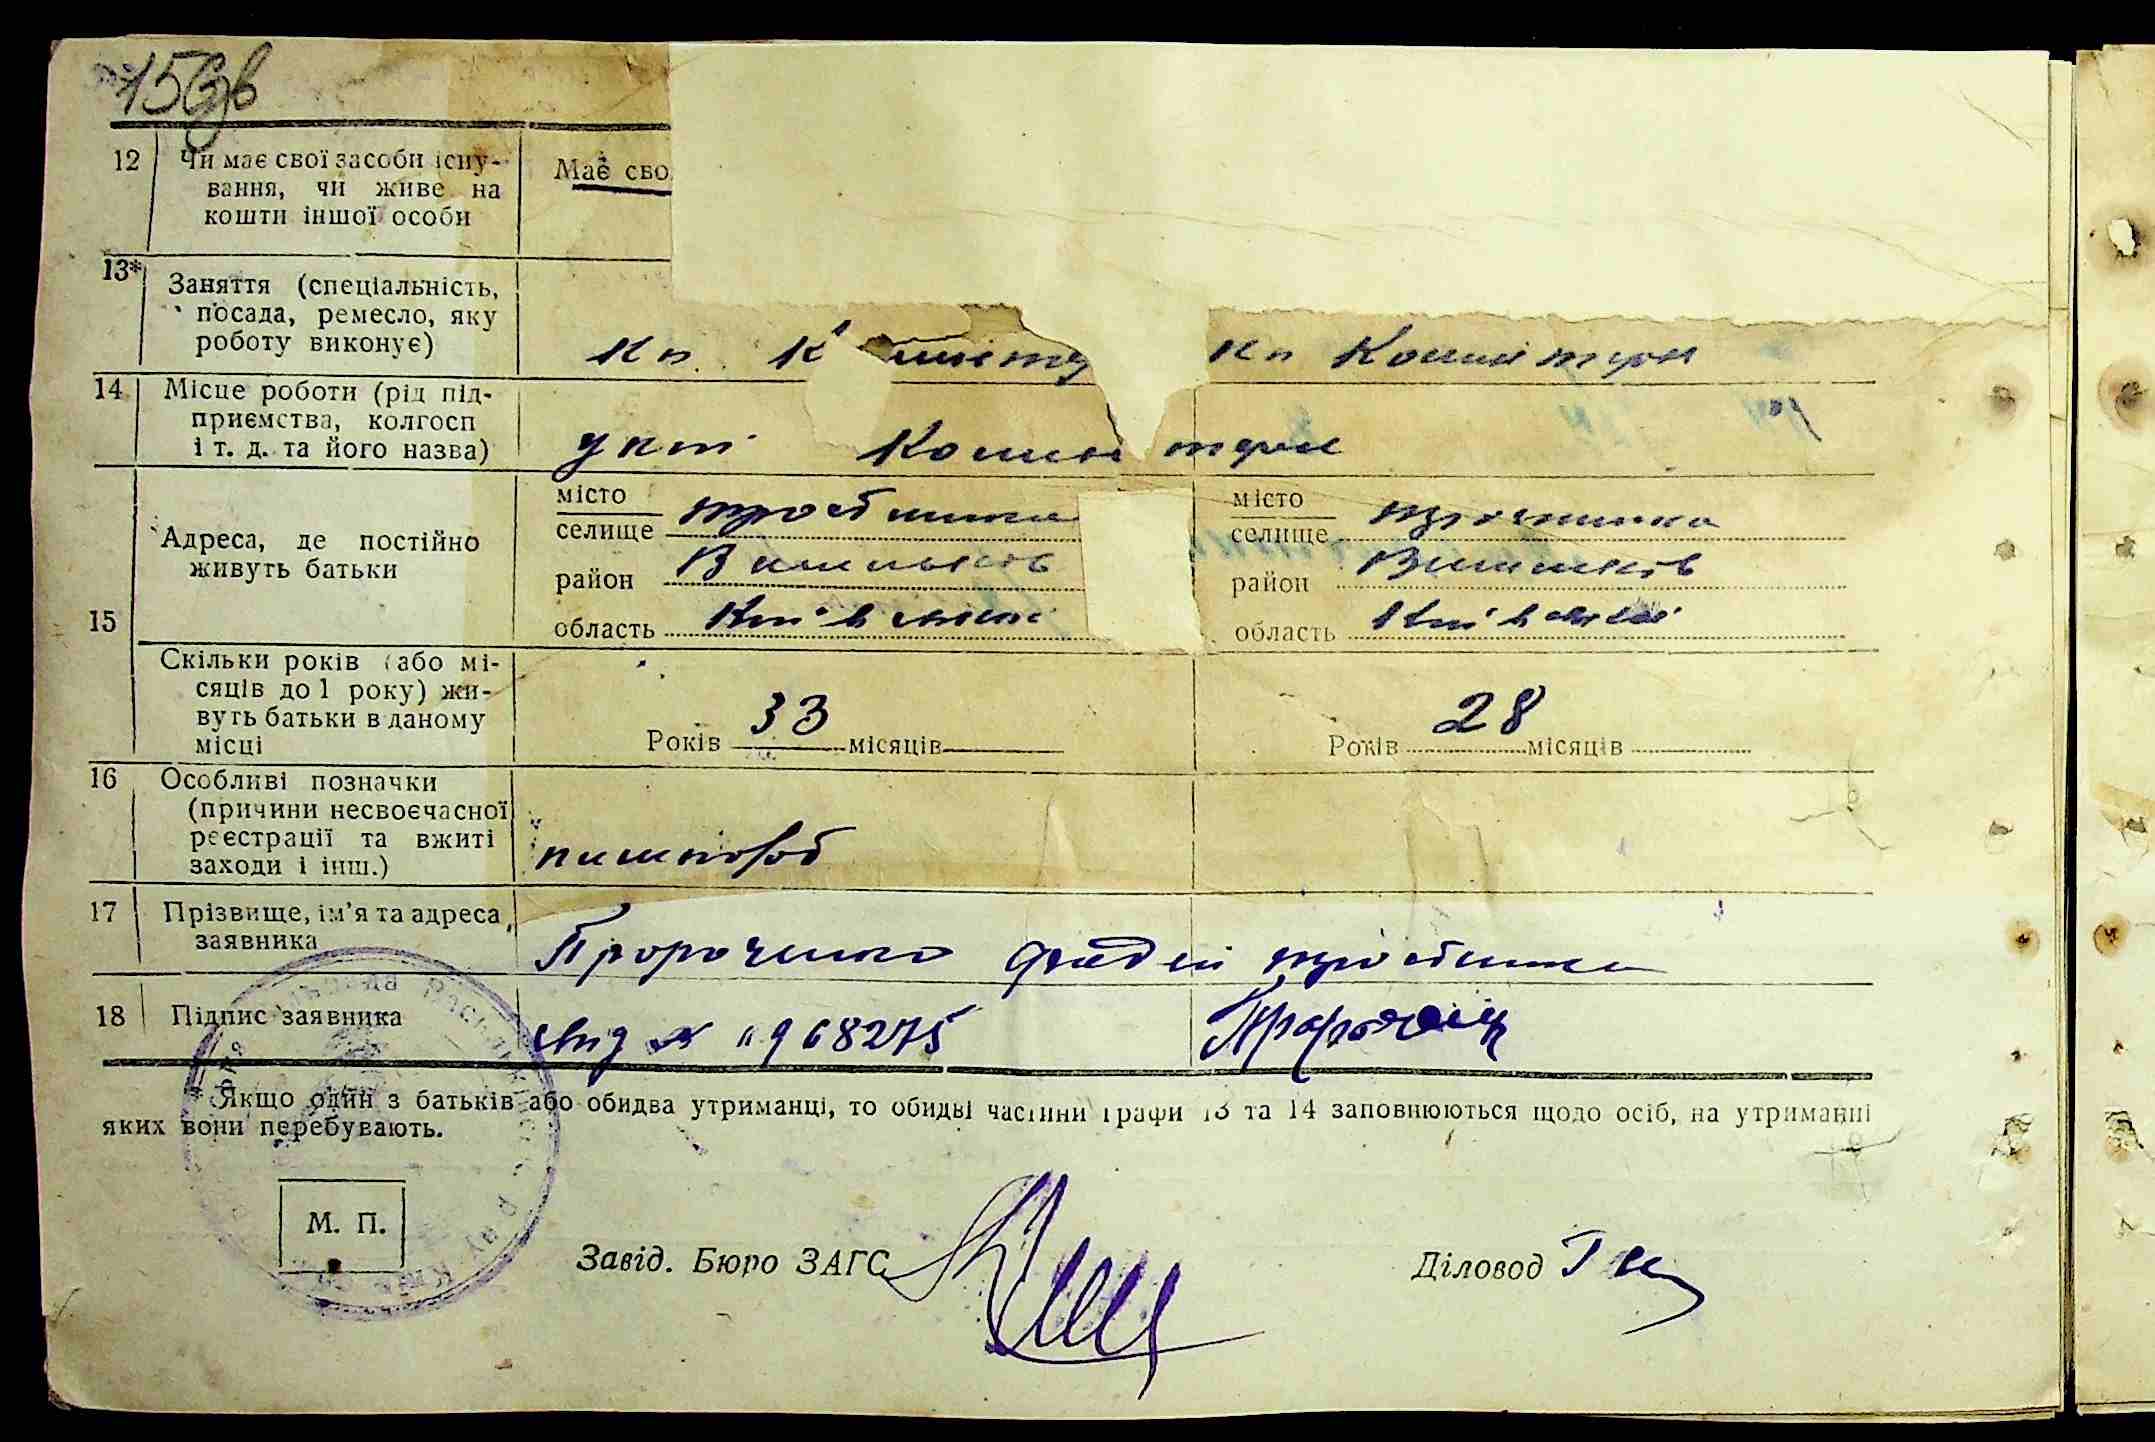 12 Чи має свої засоби існу- Має сво
вання, чи живе на
кошти іншої особи
13* Заняття (спеціальність,
посада, ремесло, яку
роботу виконує) кп кп Комінтерн
14 Місце роботи (рід під-
приємства, колгосп
і т. д. та його назва) Комінтерн
15 Адреса, де постійно
живуть батьки
місто
селище тростинка
район Васильків
область Київська
місто
селище тростинка
район Васильків
область Київська
Скільки років (або мі-
сяців до 1 року) жи-
вуть батьки в даному
місці
Років 33 місяців
Років 28 місяців
16 Особливі позначки
(причини несвоєчасної
реєстрації та вжиті
заходи і інш.)
17 Прізвище, ім'я та адреса
заявника
Пророченко Фадей тростинка
18 Підпис заявника
968275
* Якщо один з батьків або обидва утриманці, то обидві частини графи 13 та 14 заповнюються щодо осіб, на утриманні
яких вони перебувають.
М. П.
Завід. Бюро ЗАГС
Діловод